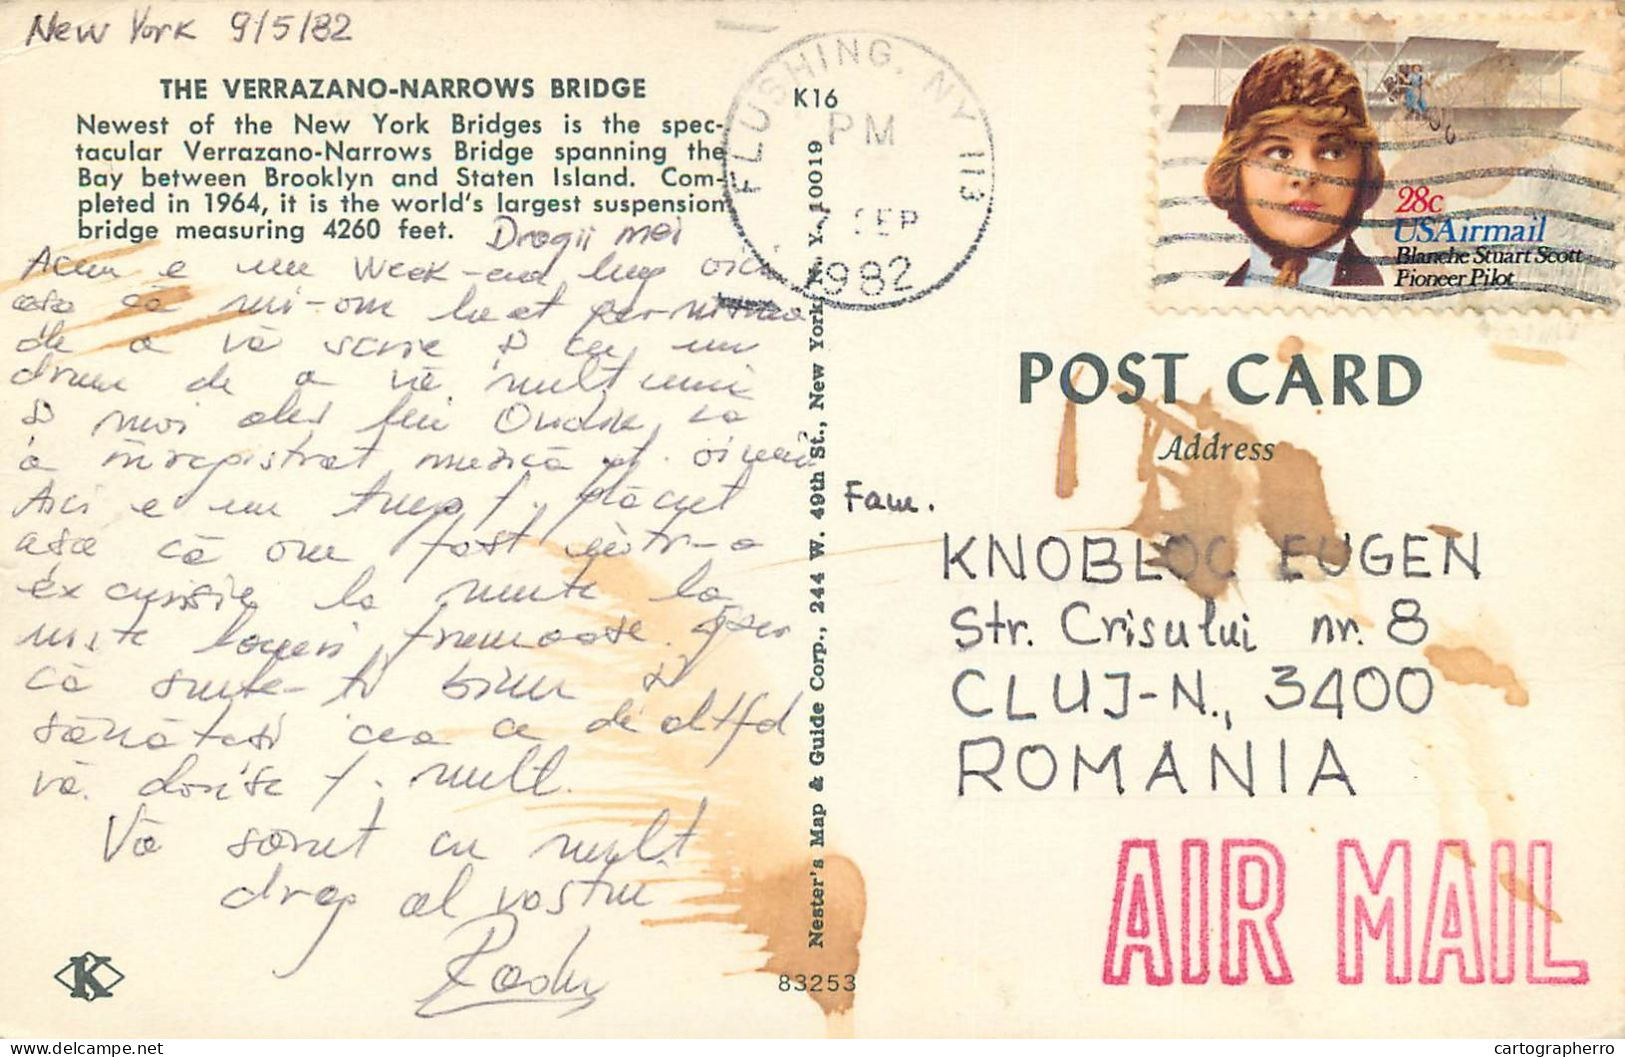 New York 9/5/82
THE VERRAZANO-NARROWS BRIDGE
Newest of the New York Bridges is the spec-
tacular Verrazano-Narrows Bridge spanning the
Bay between Brooklyn and Staten Island. Com-
pleted in 1964, it is the world's largest suspension
bridge measuring 4260 feet.
Dragii mei
Acum e un week-end lung
așa că mi-am luat
de a vă scrie și cu un
drum de a vă mulțumi
și mai ales lui Ovidiu
a înregistrat muzică
Aici e un timp f. plăcut
așa că am fost într-o
excursie la munte la
niște locuri frumoase. Sper
că sunteți bine și
sănătoși ceea ce de altfel
vă doresc f. mult.
Vă sărut cu mult
drag al vostru
Radu
K
K16
Nester's Map & Guide Corp., 244 W. 49th St., New York, N. Y., 10019
83253
FLUSHING, NY 113
PM
SEP
1982
28c
USAirmail
Blanche Stuart Scott
Pioneer Pilot
POST CARD
Address
Fam.
KNOBLOC EUGEN
Str. Crisului nr. 8
CLUJ-N., 3400
ROMANIA
AIR MAIL
cartographerro